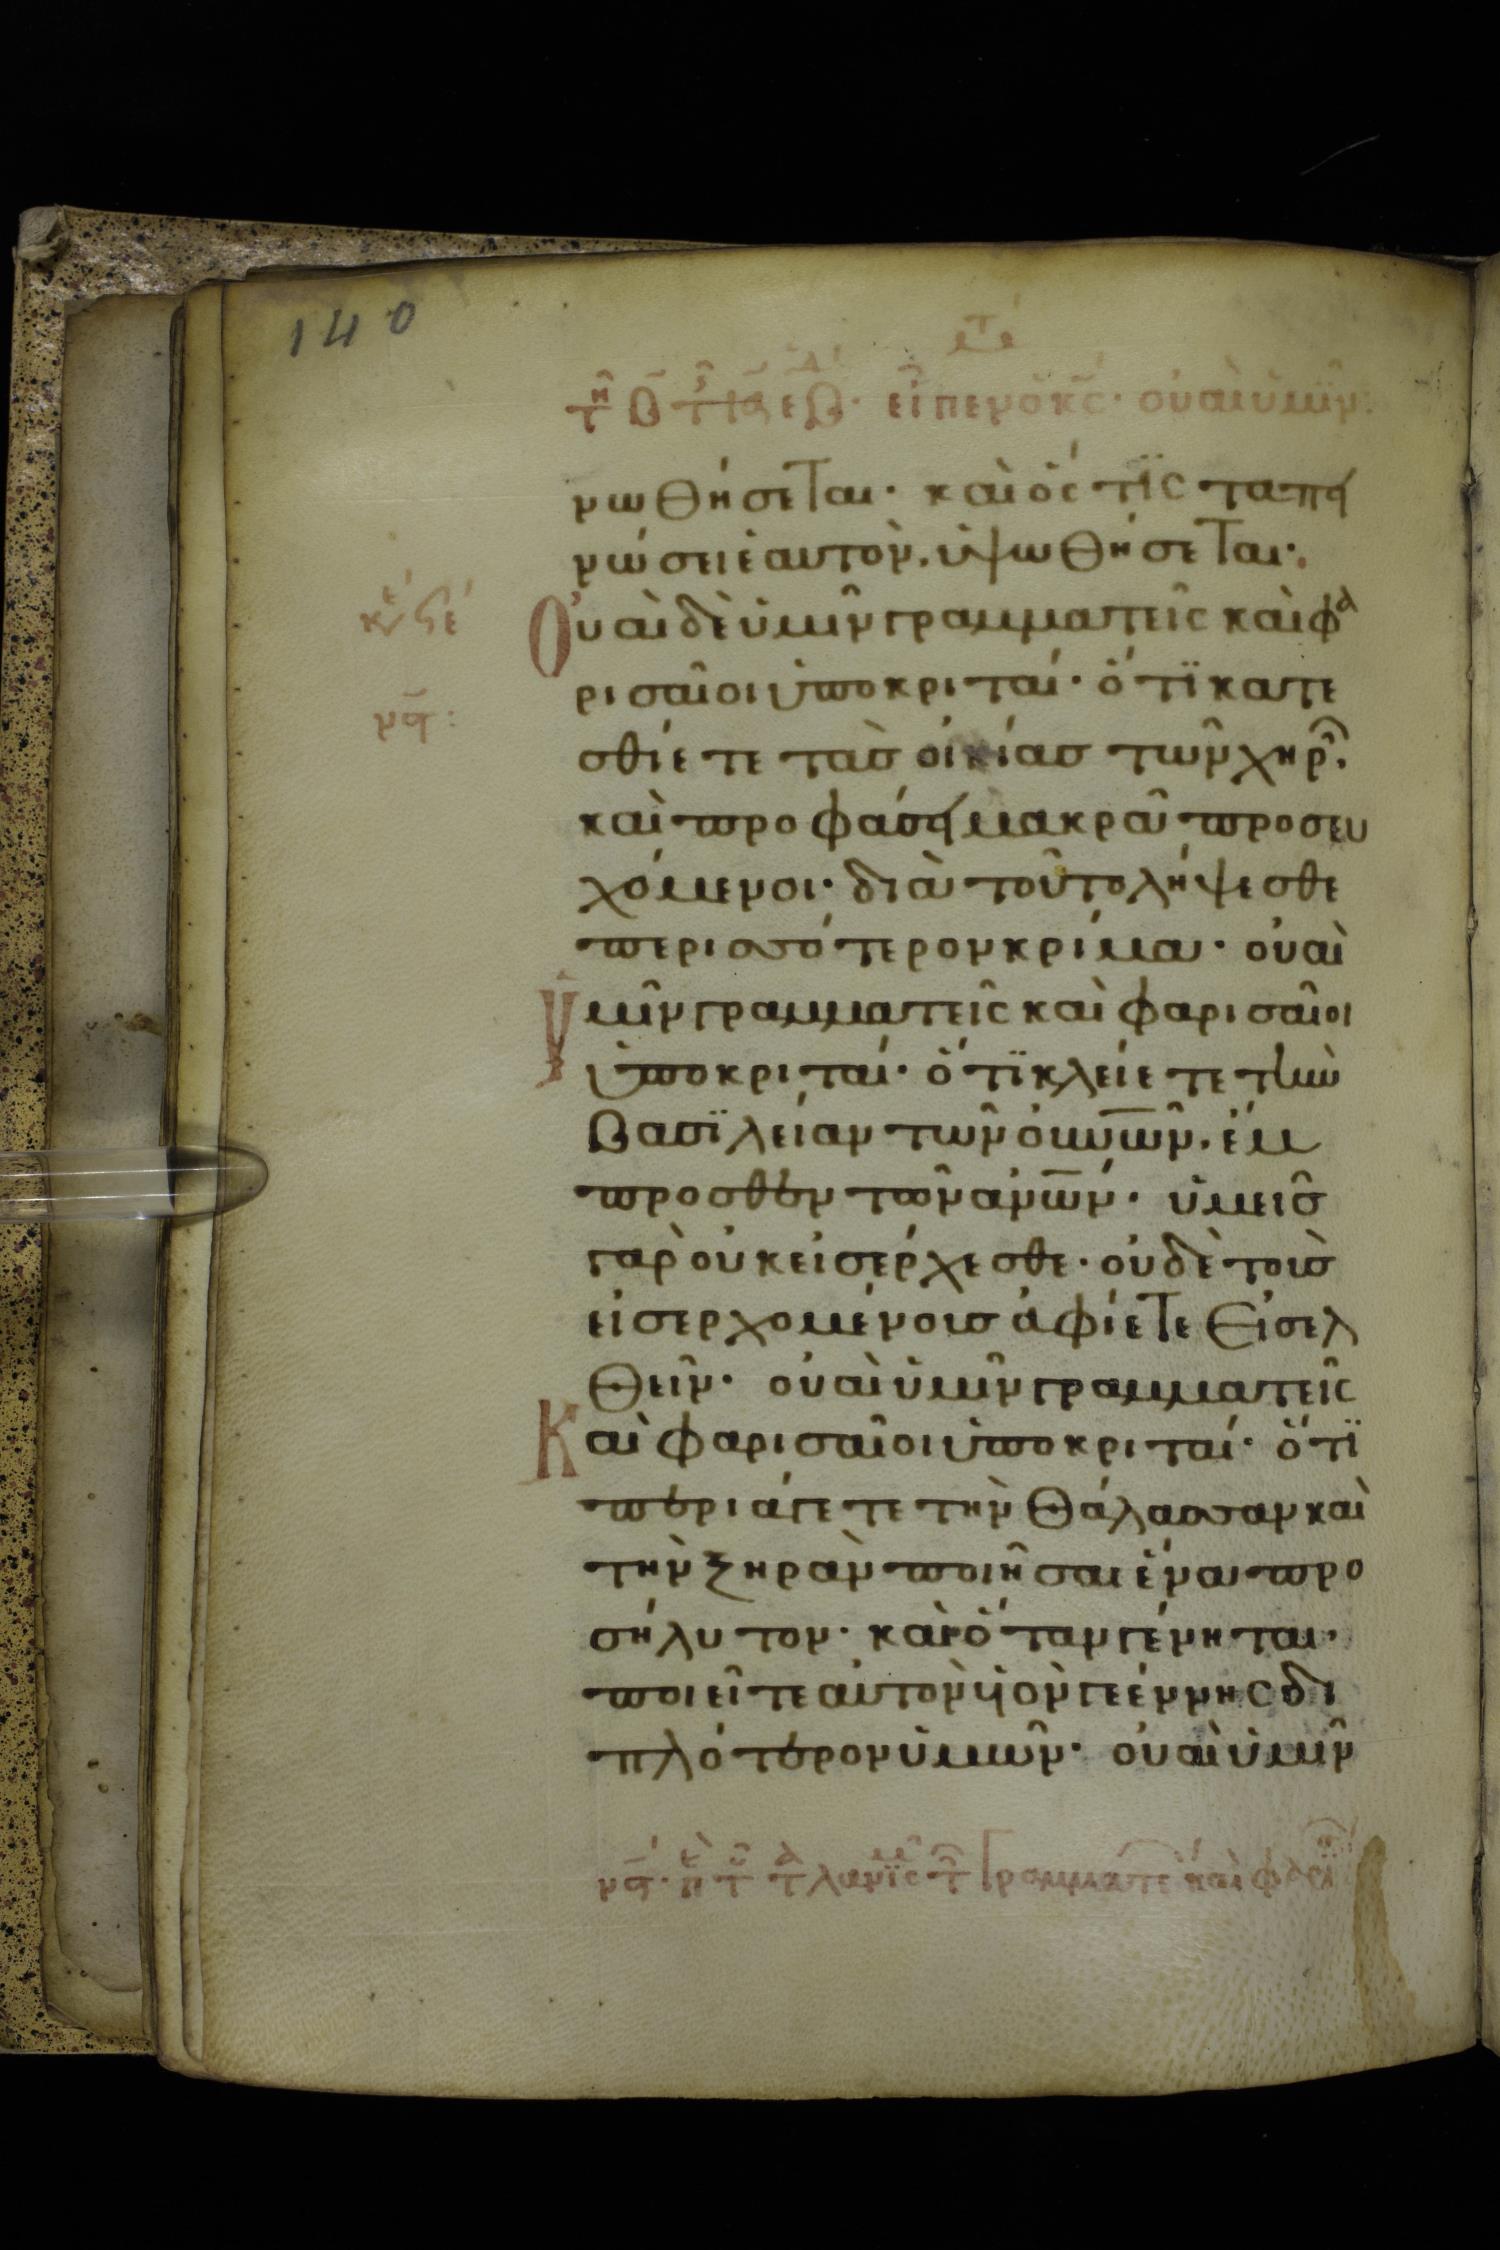 140
εἶπεν ὁ κ̅ς̅· οὐαὶ ὑμῖν
νωθήσεται· καὶ ὅς τϊς ταπει
νώσει ἑαυτὸν, ὑψωθήσεται·
Οὐαὶ δὲ ὑμῖν γραμματεῖς καὶ φα
ρισαῖοι ὑποκριταί· ὅτϊ κατε
σθίετε τὰς οἰκίας τῶν χηρῶν·
καὶ προφάσει μακρᾶ προσευ
χόμενοι· διὰ τοῦτο λήψεσθε
περισσότερον κρίμα· οὐαὶ
ὑμῖν γραμματεῖς καὶ φαρισαῖοι
ὑποκριταί· ὅτϊ κλείετε τὴν
βασϊλείαν τῶν οὐν̅ῶν, ἔμ
προσθεν τῶν ἀν̅ῶν· ὑμεῖς
γὰρ οὐκ εἰσέρχεσθε· οὐδὲ τοὺς
εἰσερχομένους ἀφίετε εἰσελ
θεῖν· οὐαὶ ὑμῖν γραμματεῖς
Καὶ φαρισαῖοι ὑποκριταί· ὅτϊ
περιάγετε τὴν θάλασσαν καὶ
τὴν ξηρὰν ποιῆσαι ἕνα προ
σήλυτον· καὶ ὅταν γένηται,
ποιεῖτε αὐτὸν υἱὸν γεέννης δι
πλότερον ὑμῶν· οὐαὶ ὑμῖν